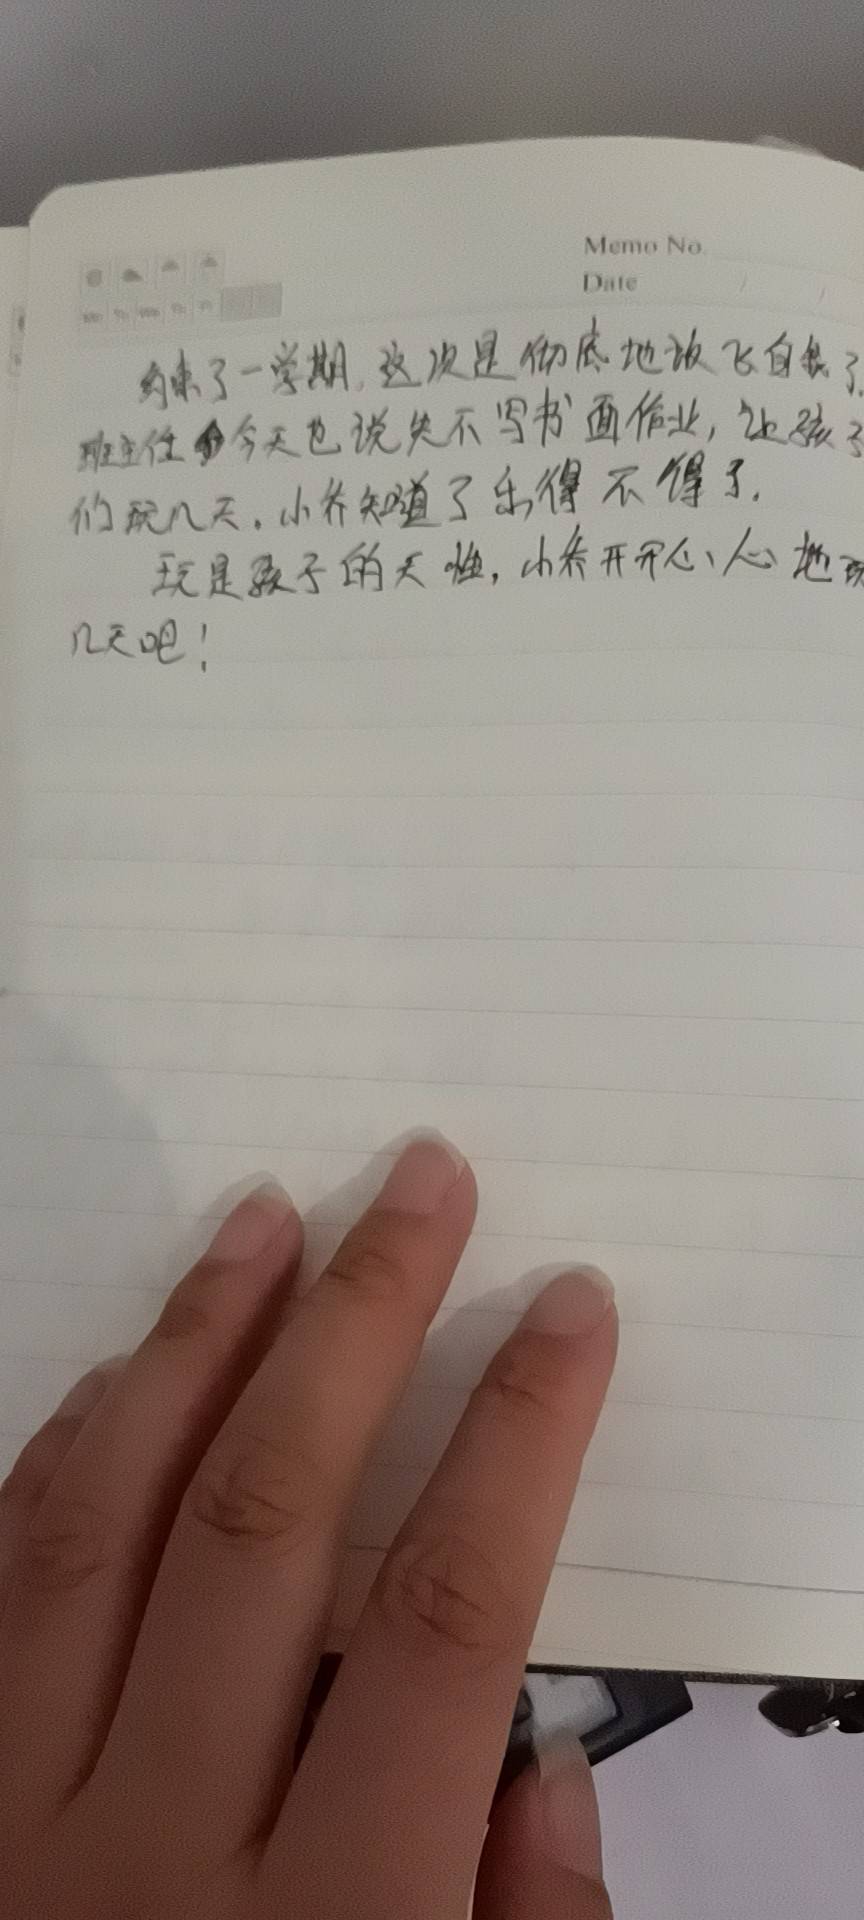 Memo No.
Date / /
约束了一学期,这次是彻底地放飞自我了.
班主任今天也说先不写书面作业,让孩子
们玩几天。小乔知道了乐得不得了.
玩是孩子的天性,小乔开开心心地玩
几天吧!